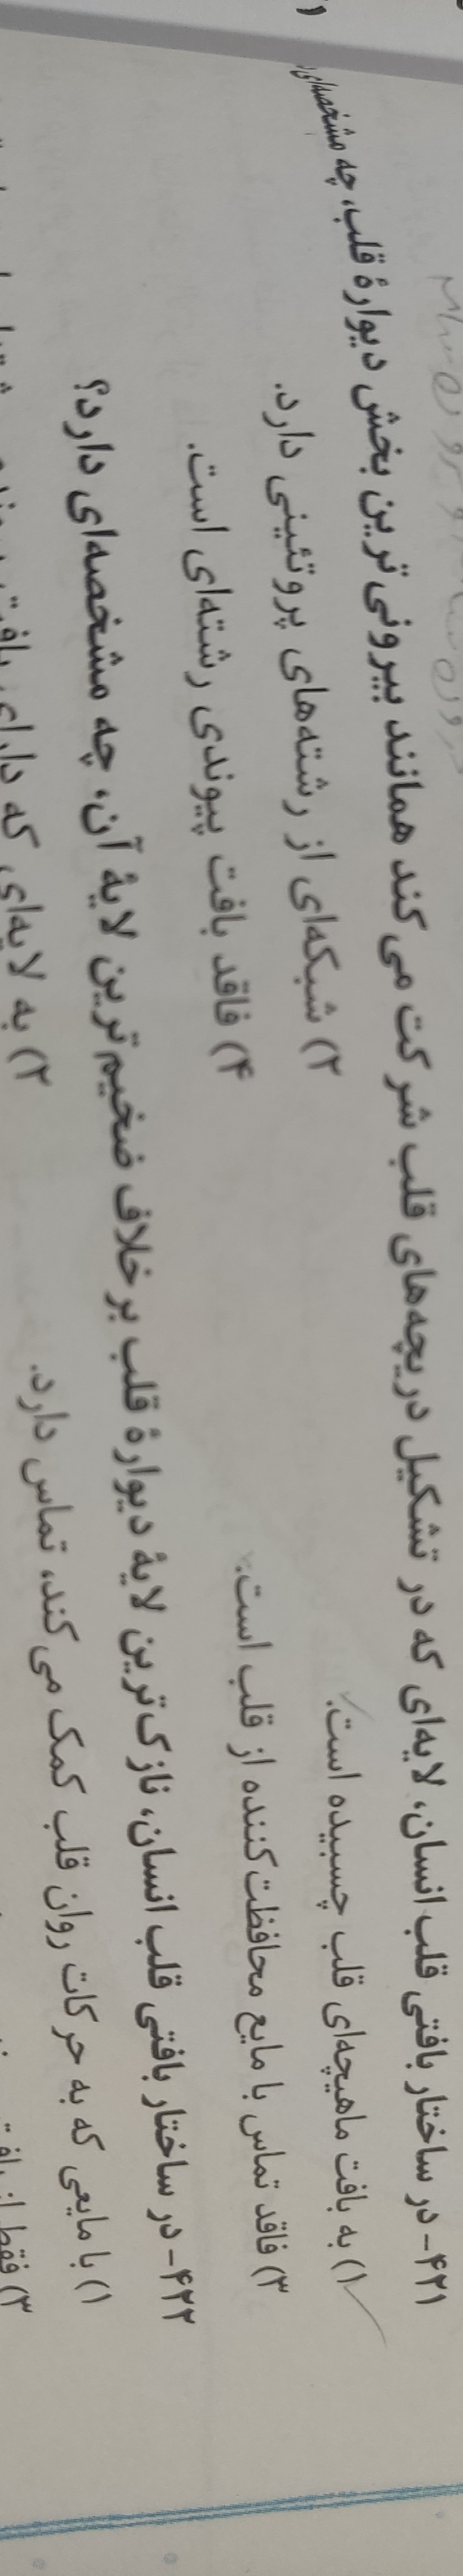 ۴۲۱- در ساختار بافتی قلب انسان، لایه‌ای که در تشکیل دریچه‌های قلب شرکت می‌کند همانند بیرونی‌ترین بخش دیوارهٔ قلب، چه مشخصه‌ای
۱) به بافت ماهیچه‌ای قلب چسبیده است. ۲) شبکه‌ای از رشته‌های پروتئینی دارد.
۳) فاقد تماس با مایع محافظت‌کننده از قلب است. ۴) فاقد بافت پیوندی رشته‌ای است.
۴۲۲- در ساختار بافتی قلب انسان، نازک‌ترین لایهٔ دیوارهٔ قلب برخلاف ضخیم‌ترین لایهٔ آن، چه مشخصه‌ای دارد؟
۱) با مایعی که به حرکات روان قلب کمک می‌کند، تماس دارد. ۲) به لایه‌ای که دارای بافت
۳) فقط از